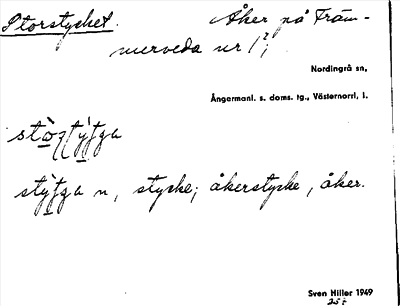 Storstycket. Åker på Främ-
merveda nr 1²;
Nordingrå sn,
Ångermanl. s. doms. tg., Västernorrl. l.
stycke; åkerstycke, åker.
Sven Hiller 1949